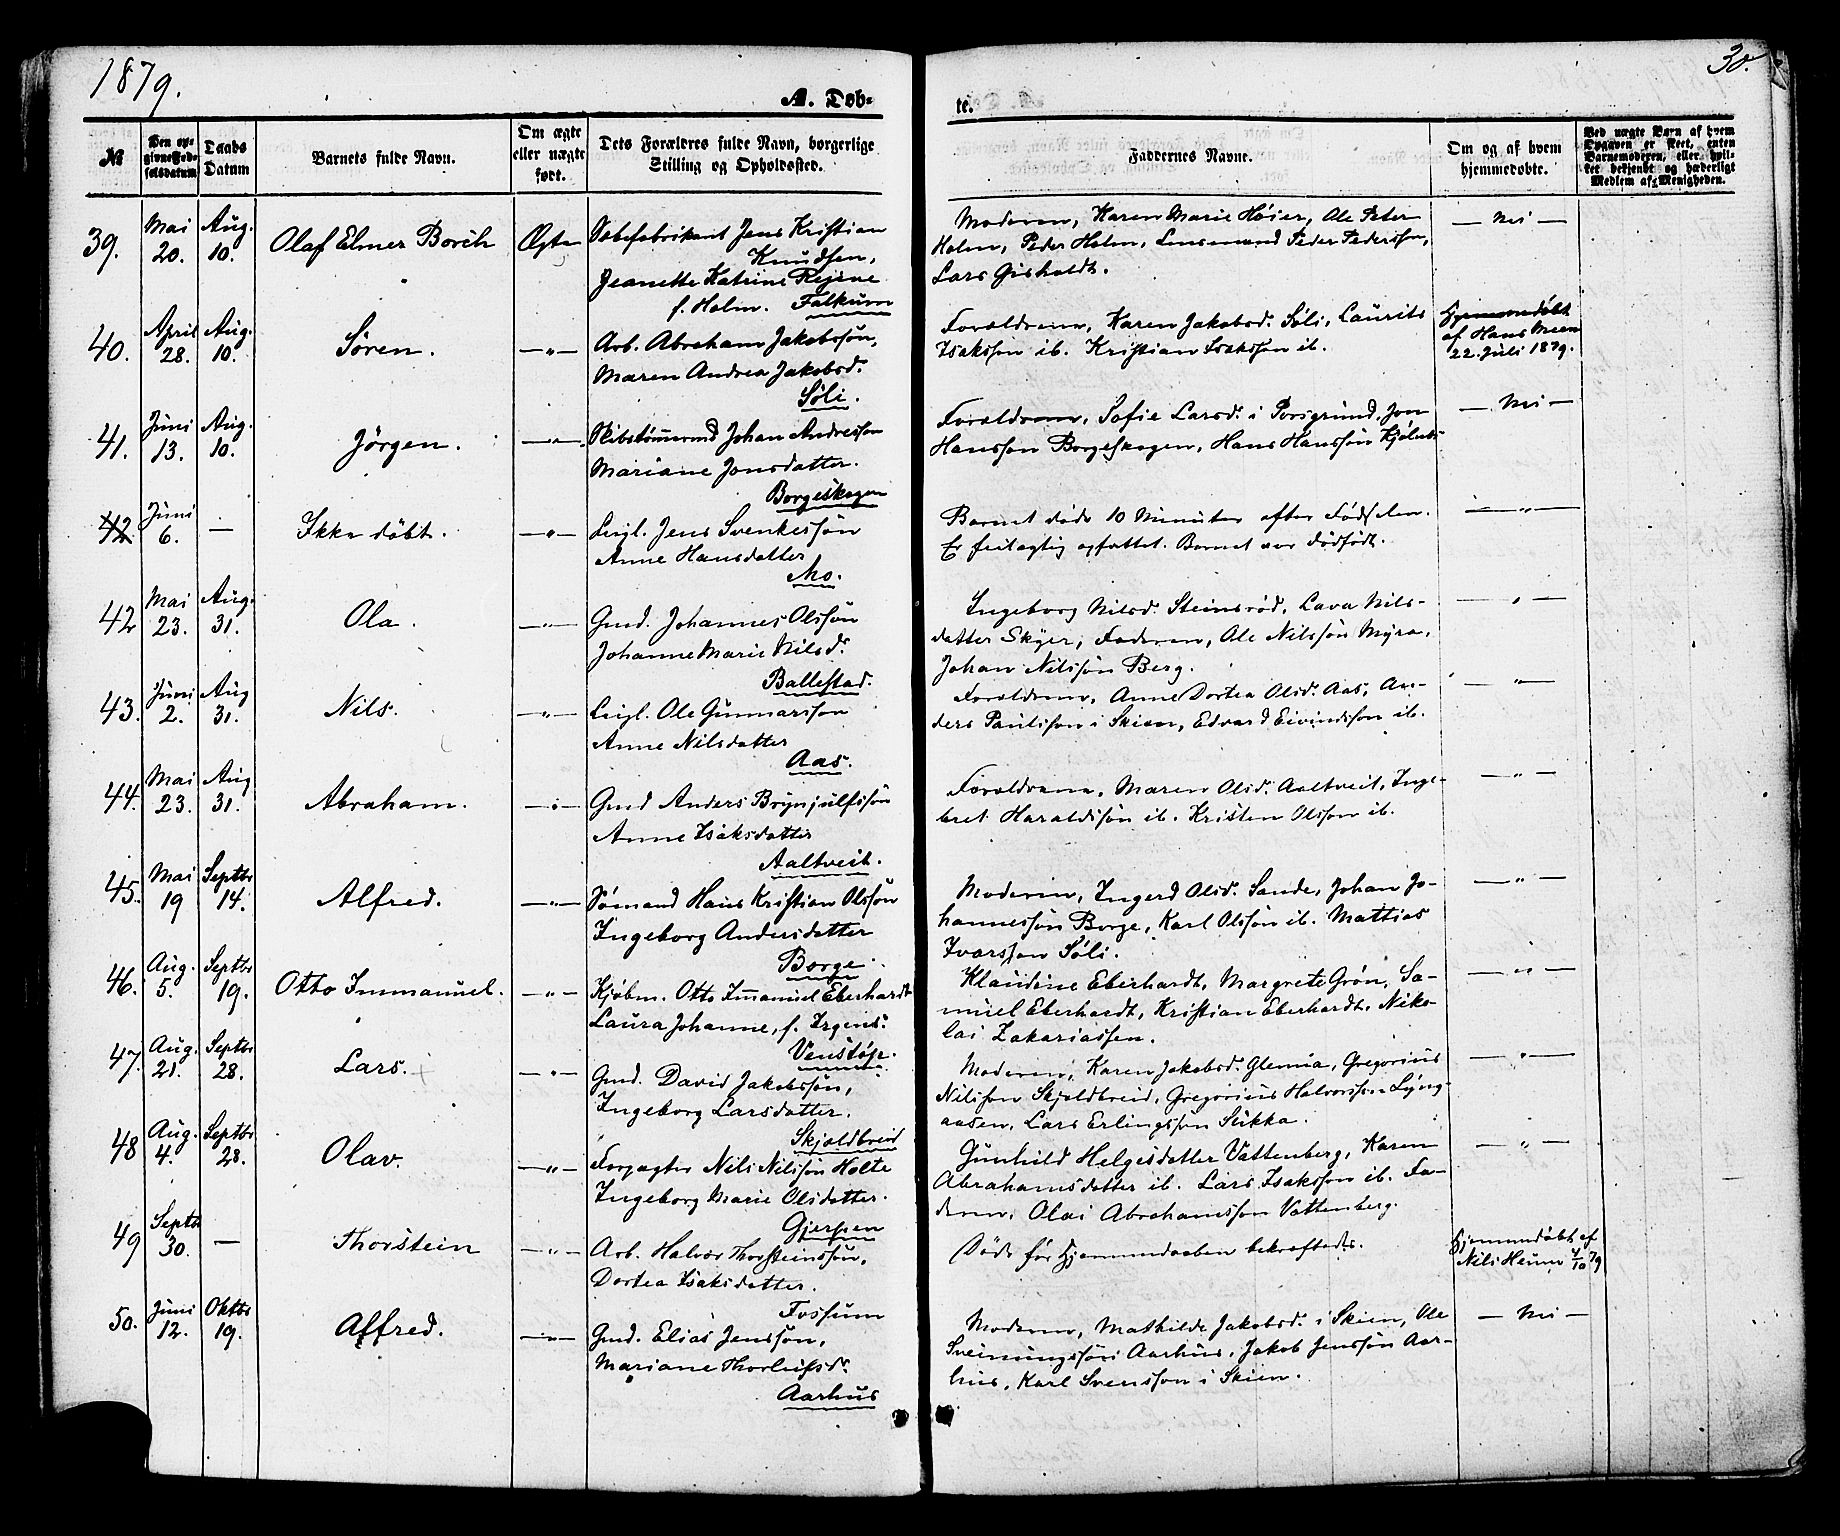 1879.
30.
A. Døb-
te.
№
Den op-
givne Fød-
selsdatum
Daabs
Datum
Barnets fulde Navn.
Om ægte
eller uægte
født.
Dets Forældres fulde Navn, borgerlige
Stilling og Opholdssted.
Faddernes Navne.
Om og af hvem
hjemmedøbte.
Ved uægte Barn af hvem
Opgaven er skeet, enten
Barnemoderen, eller hvil-
ket bekjendt og hæderligt
Medlem af Menigheden.
39. Mai 20. Aug. 10. Olaf Elmer Borch Ægte
Sæbefabrikant Jens Kristian
Knudsen,
Jeanette Katrine Regine
f. Holm. Falkum
Moderen, Karen Marie Høier, Ole Peter
Holm, Peder Holm, Lensmand Peder Pedersen,
Lars Gisholdt.
— Nei —
40. April 28. Aug. 10. Søren. —"—
Arb. Abraham Jakobssøn,
Maren Andrea Jakobsd.
Søli.
Forældrene, Karen Jakobsd. Søli, Laurits
Isakssøn ib. Kristian Isakssøn ib.
Hjemmedøbt
af Hans Meen
22. Juli 1879.
41. Juni 13. Aug. 10. Jørgen. —"—
Skibstømmermd Johan Andressøn
Mariane Jonsdatter.
Borgeskogen
Forældrene, Sofie Larsd. i Porsgrund, Jon
Hanssøn Borgeskogen, Hans Hanssøn
— Nei —
42. Juni 6. — Ikke døbt. —"—
Leigl. Jens Svenkessøn
Anne Hansdatter
Mo.
Barnet døde 10 Minuter efter Fødselen.
Er feilagtig opfattet. Barnet var dødfødt.
—"—
42 Mai 23. Aug. 31. Ola. —"—
Gmd. Johannes Olssøn
Johanne Marie Nilsd.
Ballestad.
Ingeborg Nilsd. Steinsrød, Lava Nils-
datter Skyer, Faderen, Ole Nilssøn Myra,
Johan Nilssøn Berg.
—"—
43. Juni 2. Aug 31. Nils. —"—
Leigl. Ole Gunnarssøn
Anne Nilsdatter
Aas.
Forældrene, Anne Dortea Olsd. Aas, An-
ders Paulssøn i Skien, Edvard Eivindssøn ib.
—"—
44. Mai 23. Aug 31. Abraham. —"—
Gmd Anders Brynjulfssøn
Anne Isaksdatter
Aaltveit.
Forældrene, Maren Olsd. Aaltveit, Inge-
bret Haraldssøn ib. Kristen Olssøn ib.
—"—
45. Mai 19 Septbr 14. Alfred. —"—
Sømand Hans Kristian Olssøn
Ingeborg Andersdatter
Borge.
Moderen, Ingerd Olsd. Sande, Johan Jo-
hannessøn Borge, Karl Olssøn ib. Mattias
Ivarssøn Søli.
—"—
46. Aug. 5. Septbr 19. Otto Immanuel. —"—
Kjøbm. Otto Immanuel Eberhardt
Laura Johanne, f. Irgens.
Venstøp.
Klaudine Eberhardt, Margrete Grøn, Sa-
muel Eberhardt, Kristian Eberhardt, Niko-
lai Zakariassen.
—"—
47. Aug. 21. Septbr 28. Lars. —"—
Gmd. David Jakobssøn,
Ingeborg Larsdatter.
Skjoldbreid
Moderen, Karen Jakobsd. Glenna, Gregorius
Nilssøn Skjoldbreid, Gregorius Halvorssøn Lyng-
aasen, Lars Erlingssøn Stikka.
—"—
48 Aug. 4. Septbr 28. Olav. —"—
Forpagter Nils Nilssøn Holte
Ingeborg Marie Olsdatter.
Gjerpen
Gunhild Helgesdatter Vattenberg, Karen
Abrahamsdatter ib. Lars Isakssøn ib. Fa-
deren, Olai Abrahamssøn Vattenberg.
—"—
49 Septbr 30. — Thorstein —"—
Arb. Halvor Thorsteinssøn,
Dortea Isaksdatter.
Fossum
Døde før Hjemmedaaben bekræftedes.
Hjemmedøbt af
Nils Heum 4/10 79
50. Juni 12. Oktbr 19. Alfred. —"—
Gmd. Elias Jenssøn,
Mariane Thorleifsd.
Aarhus
Moderen, Mathilde Jakobsd. i Skien, Ole
Sveinungssøn Aarhus, Jakob Jenssøn Aar-
hus, Karl Svenssøn i Skien.
— Nei —